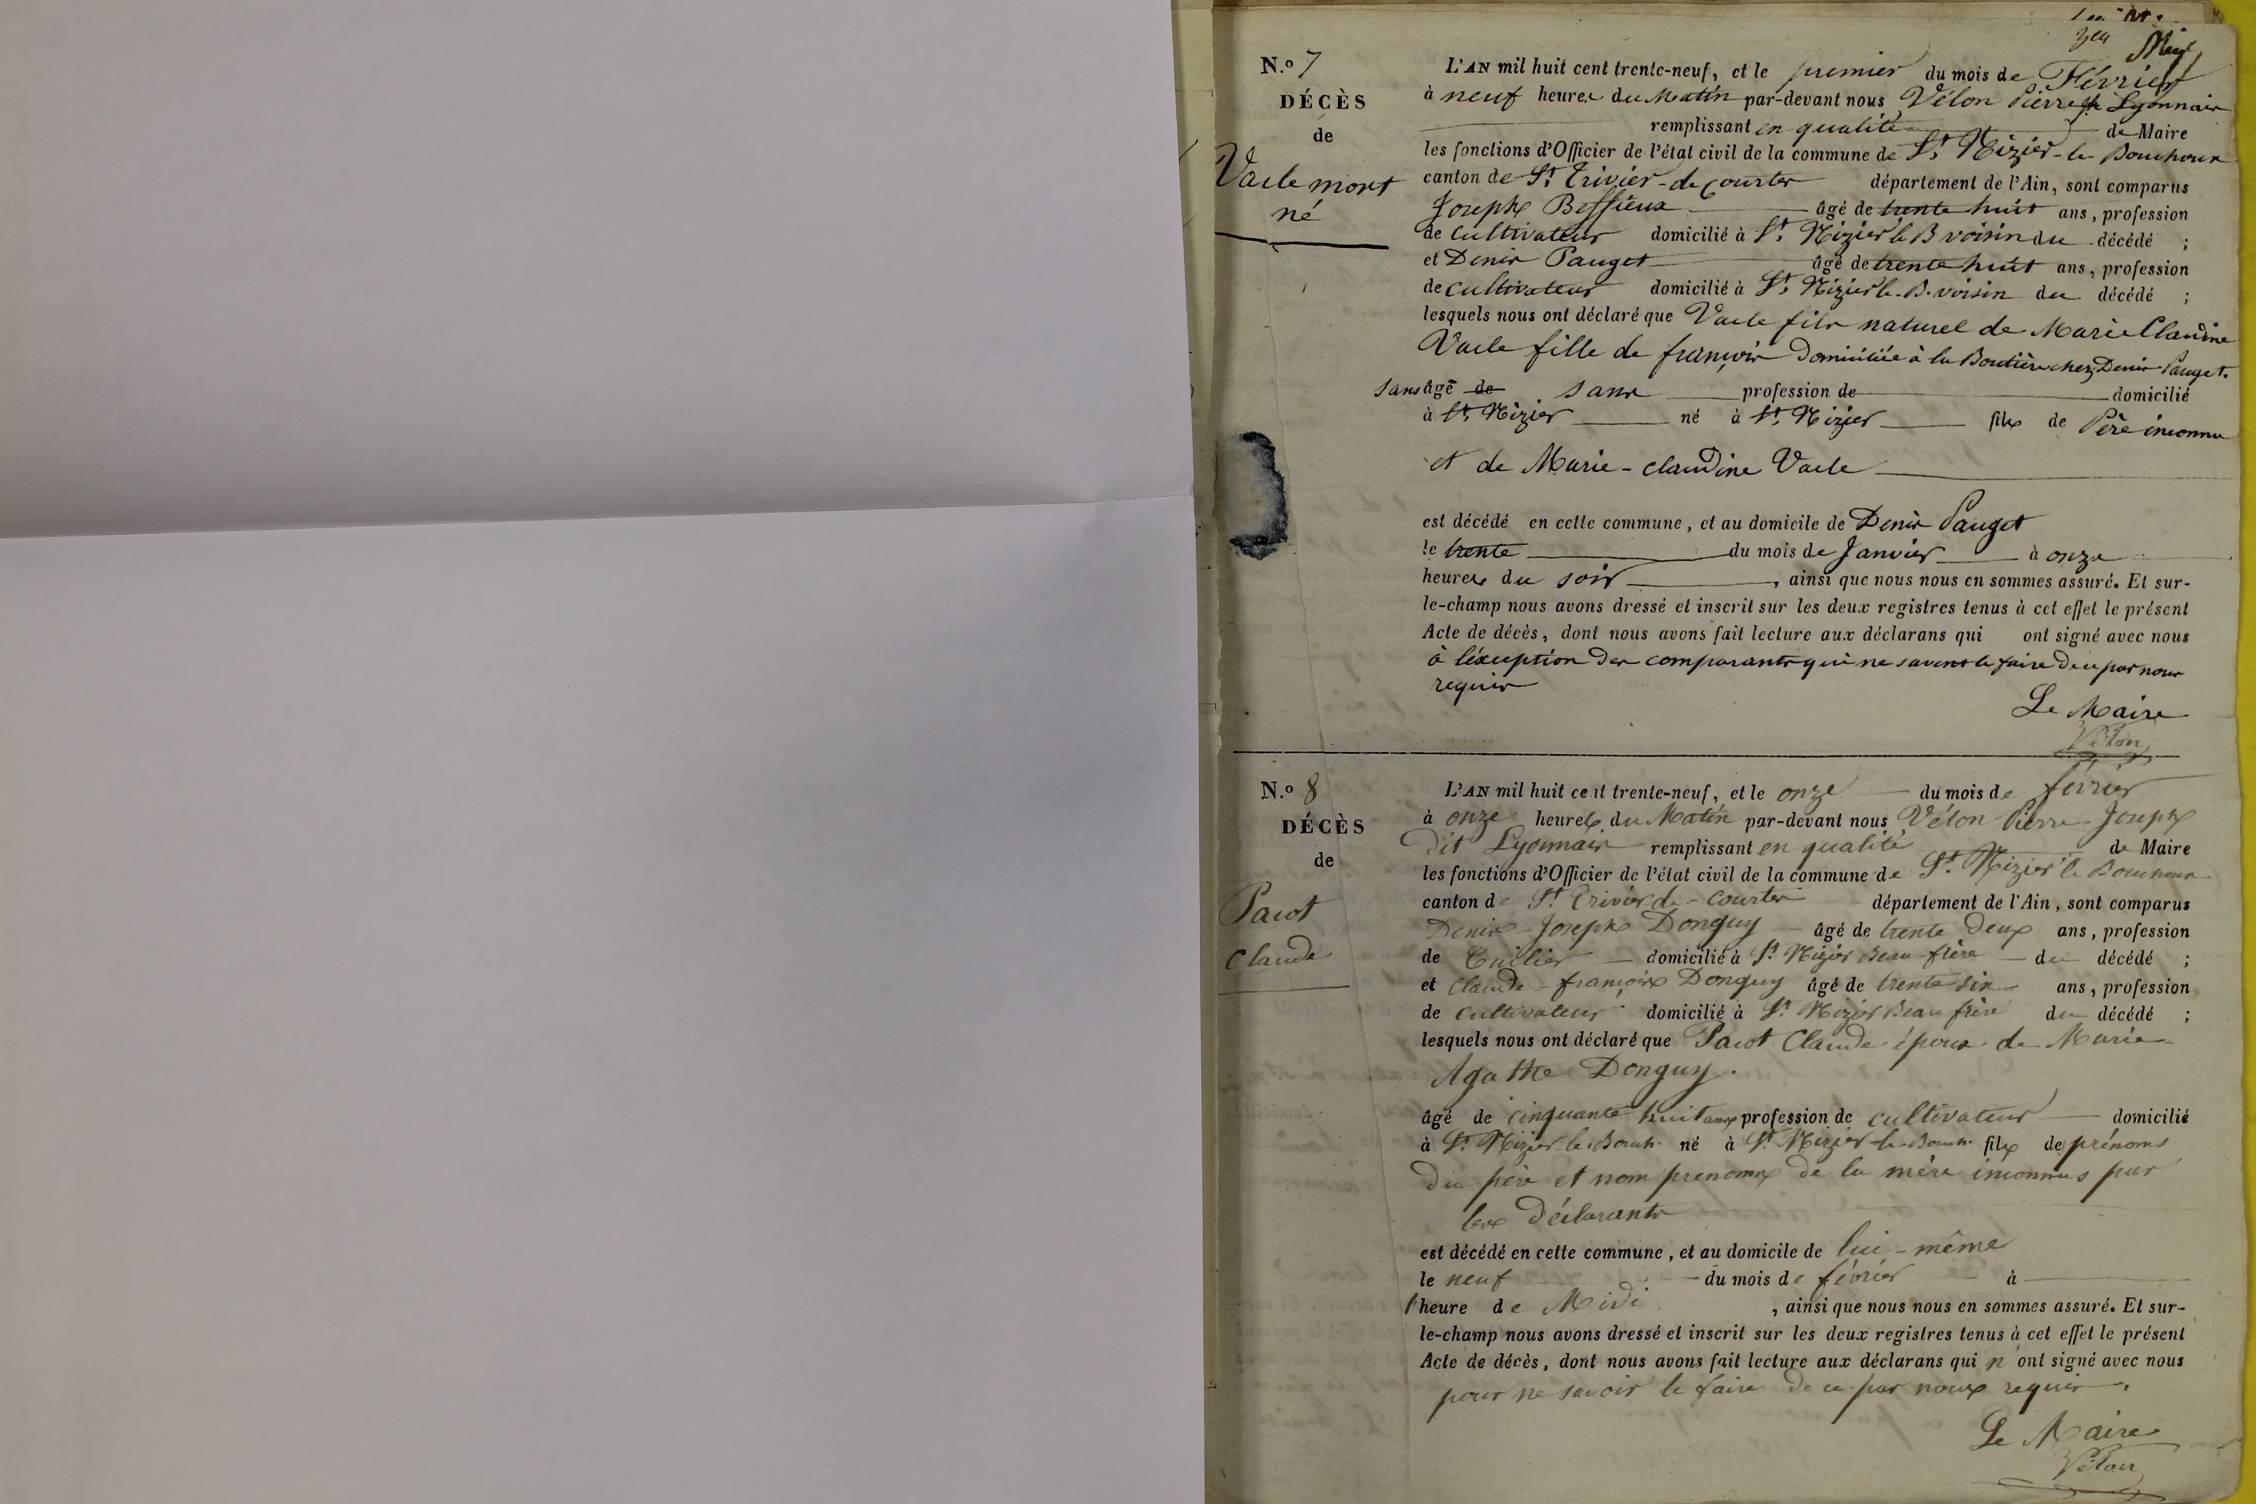 N.o 7
DÉCÈS
de
Vacle mort
né
L'AN mil huit cent trente-neuf, et le premier du mois de Février
à neuf heures du Matin par-devant nous Vélon Pierre Jh Lyonnais
remplissant en qualité de Maire
les fonctions d'Officier de l'état civil de la commune de St. Nizier-le-Bouchoux
canton de St. Trivier-de-Courtes département de l'Ain, sont comparus
Joseph Beffieux âgé de trente huit ans, profession
de cultivateur domicilié à St. Nizier le B voisin du décédé ;
et Denis Pauget âgé de trente huit ans, profession
de cultivateur domicilié à St. Nizier le-B. voisin du décédé ;
lesquels nous ont déclaré que Vacle fils naturel de Marie Claudine
Vacle fille de françois domiciliée à la Boutière chez Denis Pauget.
sans âgé de sans profession de domicilié
à St. Nizier né à St. Nizier fils de Père inconnu
et de Marie-claudine Vacle
est décédé en cette commune, et au domicile de Denis Pauget
le trente du mois de Janvier à onze
heures du soir, ainsi que nous nous en sommes assuré. Et sur-
le-champ nous avons dressé et inscrit sur les deux registres tenus à cet effet le présent
Acte de décès, dont nous avons fait lecture aux déclarans qui ont signé avec nous
à l'éxception des comparants qui ne savent le faire de ce par nous
requis
Le Maire
Vélon
N.o 8
DÉCÈS
de
Pacot
Claude
L'AN mil huit cent trente-neuf, et le onze du mois de février
à onze heures du Matin par-devant nous Vélon Pierre-Joseph
dit Lyonnais remplissant en qualité de Maire
les fonctions d'Officier de l'état civil de la commune de St. Nizier le Bouchoux
canton de St. Trivier de-Courtes département de l'Ain, sont comparus
Denis-Joseph Donguy âgé de trente deux ans, profession
de Tuilier domicilié à St. Nizier Beau-frère du décédé ;
et Claude-françois Donguy âgé de trente six ans, profession
de cultivateur domicilié à St. Nizier Beau frère du décédé ;
lesquels nous ont déclaré que Pacot Claude époux de Marie
Agathe Donguy.
âgé de cinquante huit ans profession de cultivateur domicilié
à St. Nizier-le-Bouch. né à St. Nizier-le-Bouch. fils de prénoms
du père et nom prenoms de la mère inconnus par
les déclarants
est décédé en cette commune, et au domicile de lui-même
le neuf du mois de février à
l'heure de Midi, ainsi que nous nous en sommes assuré. Et sur-
le-champ nous avons dressé et inscrit sur les deux registres tenus à cet effet le présent
Acte de décès, dont nous avons fait lecture aux déclarans qui n'ont signé avec nous
pour ne savoir le faire de ce par nous requis.
Le Maire
Vélon